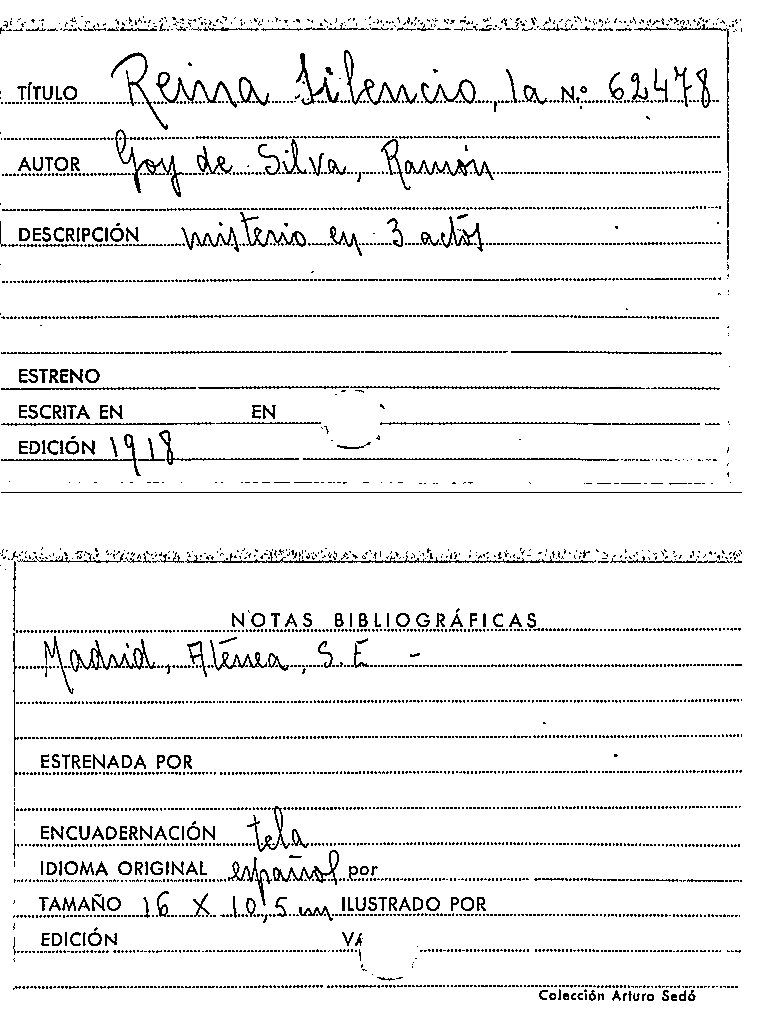 TÍTULO Reina Silencio, la N.º 62478
AUTOR Goy de Silva, Ramón
DESCRIPCIÓN misterio en 3 actos
ESTRENO
ESCRITA EN EN
EDICIÓN 1918
NOTAS BIBLIOGRÁFICAS
Madrid, Aténea, S.E -
ESTRENADA POR
ENCUADERNACIÓN tela
IDIOMA ORIGINAL español por
TAMAÑO 16 X 10,5 cm ILUSTRADO POR
EDICIÓN
Colección Arturo Sedó